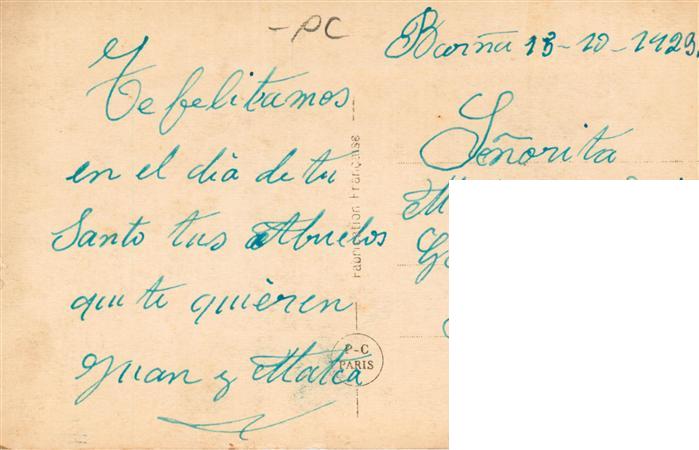 -PC
Barña 13-10-1929.
Te felitamos
en el dia de tu
Santo tus Abuelos
qui te quieren
Juan y Matea
Señorita
Fabrication Française
P-C
PARIS